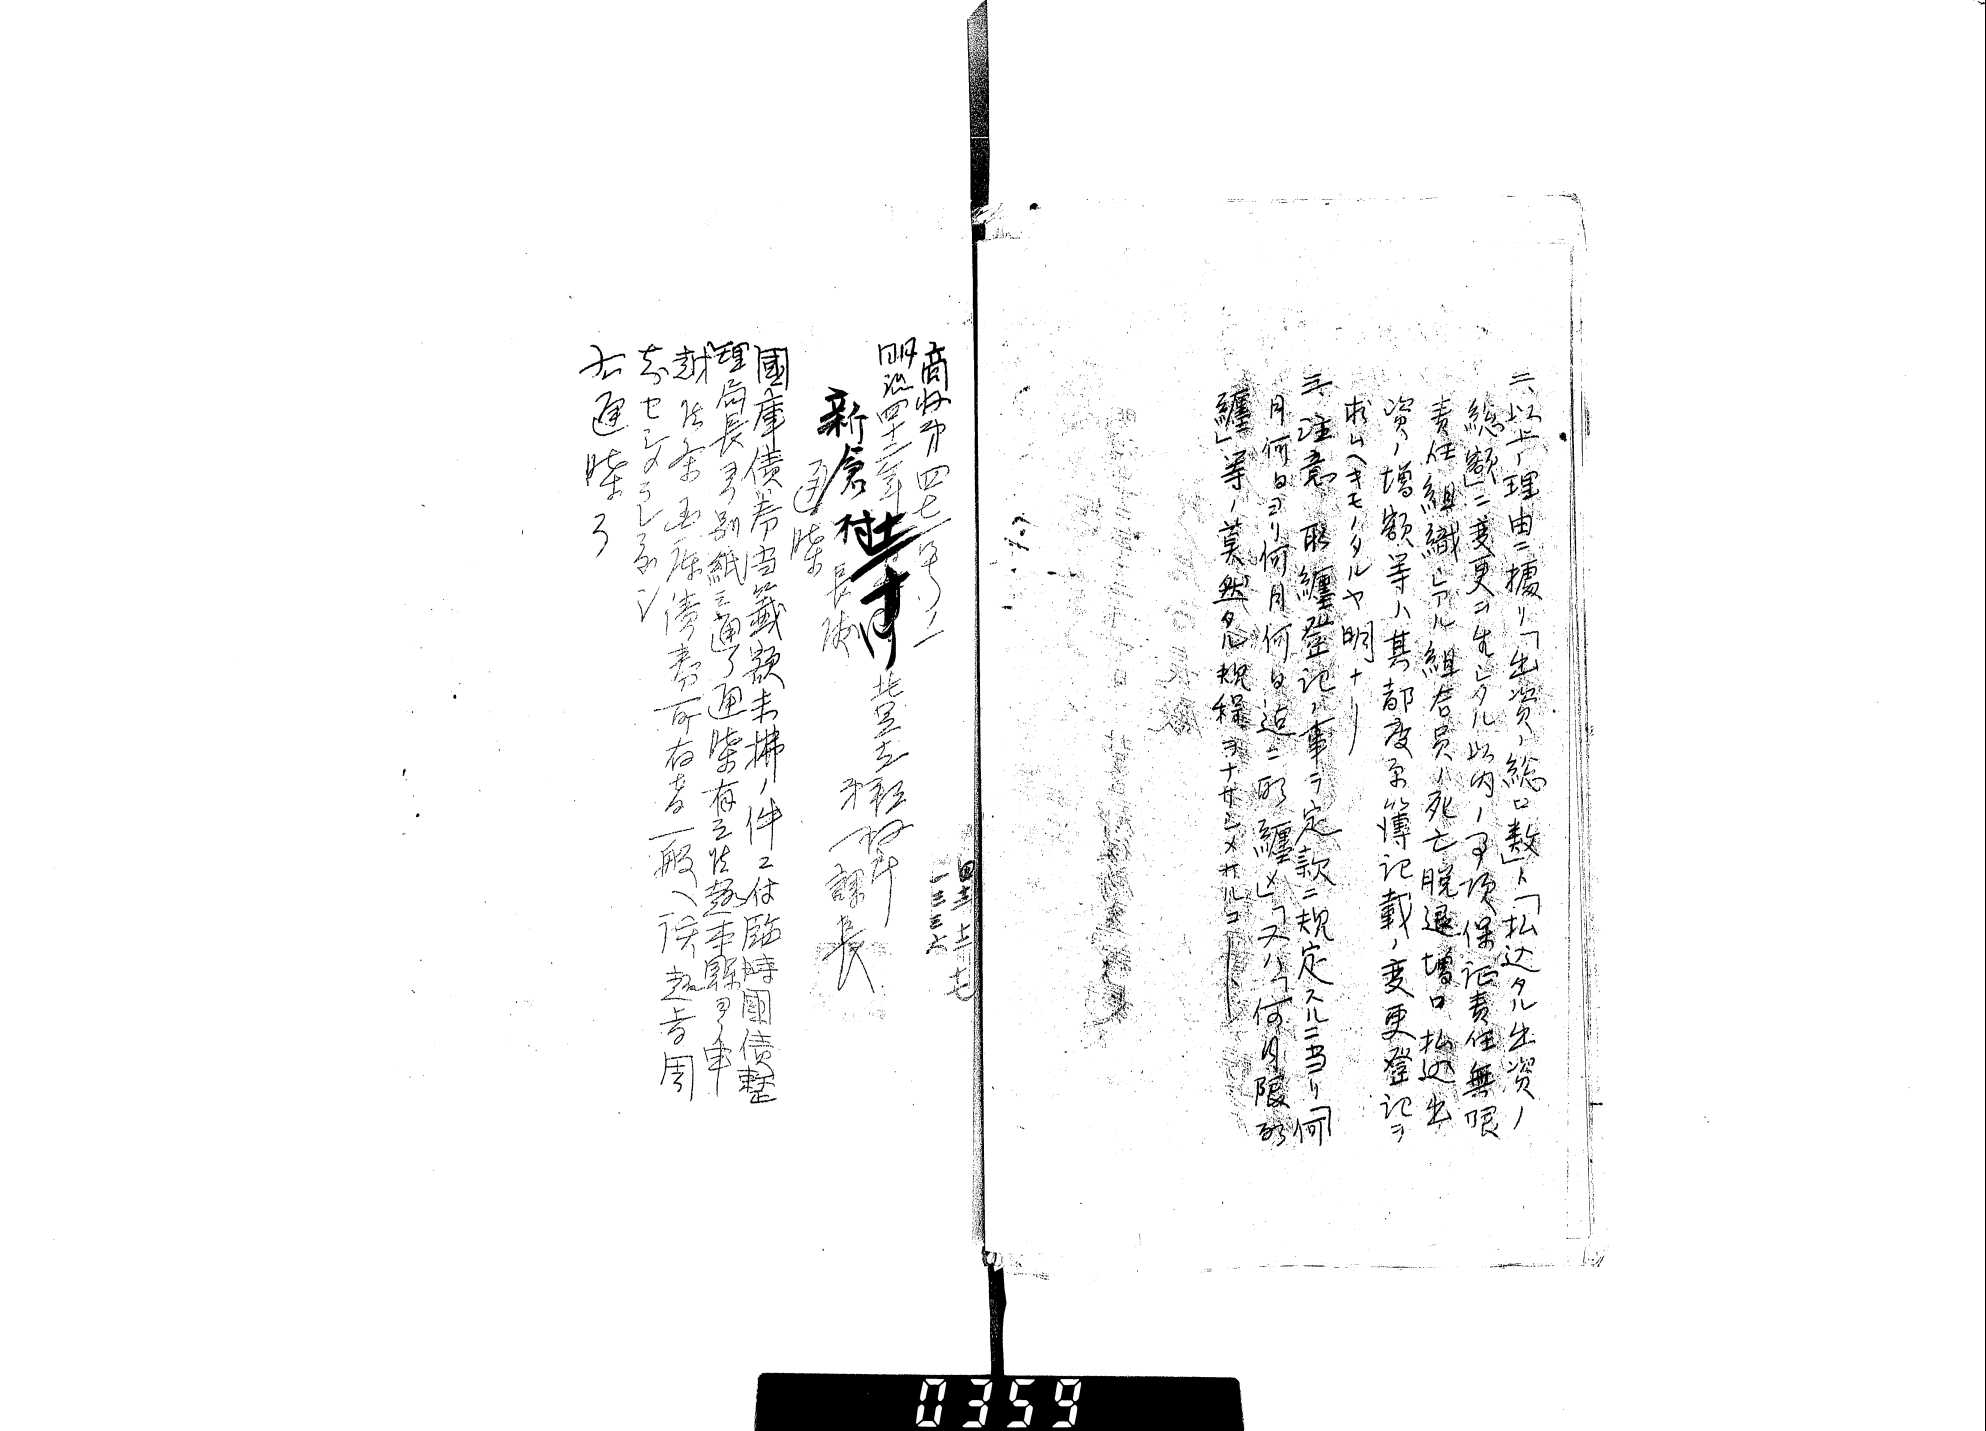 二、以上ノ理由ニ據リ「出資ノ総口数」ト「払込タル出資ノ
総額」ニ変更ヲ生シタル以内ノ事項保証責任無限
責任組織ニアル組合員ノ死亡脱退増口払込出
資ノ増額等ハ其都度原簿記載ノ変更登記ヲ
求ムヘキモノタルヤ明ナリ
三、注意 取纏登記ノ事ヲ定款ニ規定スルニ当リ「何
月何日ヨリ何月何日迄ニ取纏メ」「又ハ「何月限取
纏」等ノ莫然タル規程ヲナサシメサルコト
商収第四七一号ノ一
明治四十二年十二月
北足立郡役所
第一課長
新倉村長殿
通牒
國庫債券当籤額未拂ノ件ニ付臨時國債整
理局長ヨリ別紙之通リ通牒有之候趣本縣ヨリ申
越候条國庫債券所有者一般ヘ該趣旨周
知セシメラレ度シ
右通牒ス
四二 十二 七
一三三六
0359